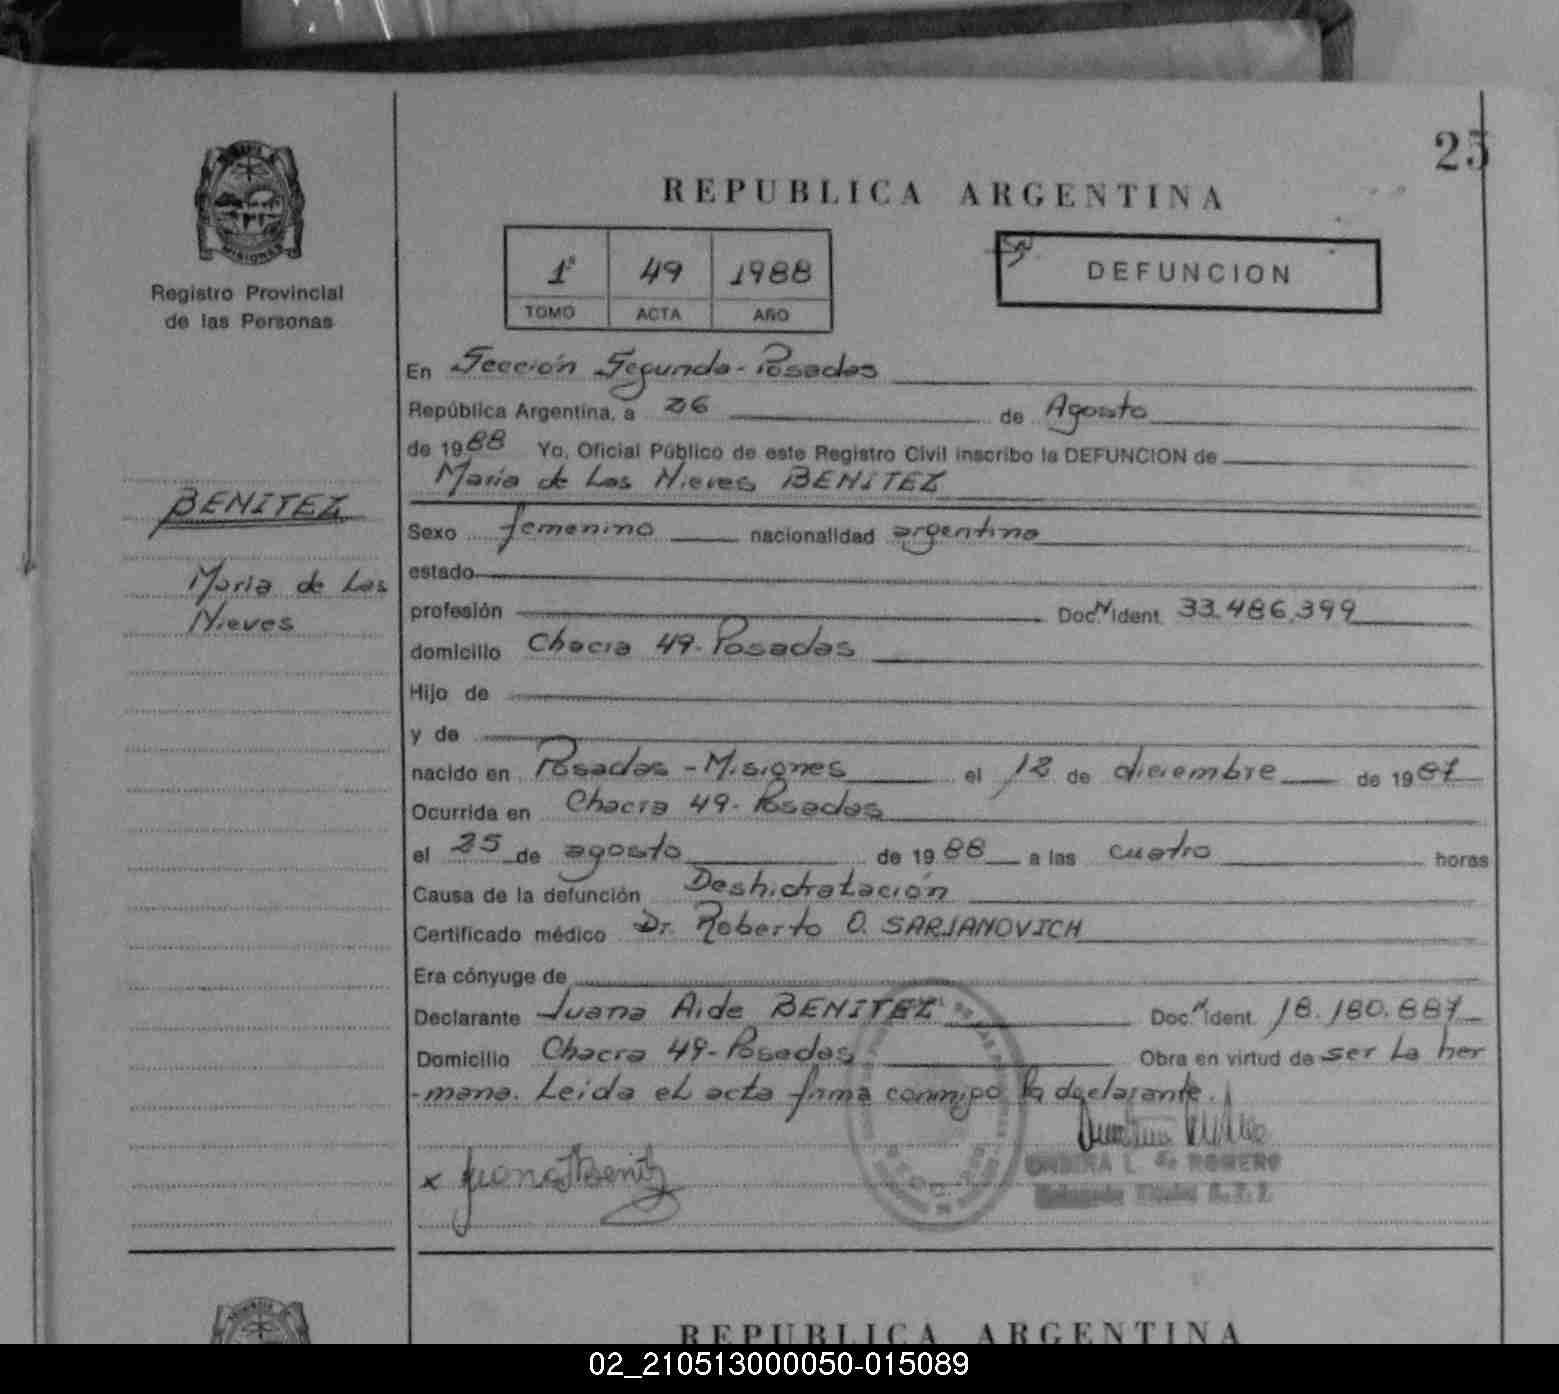 25
REPUBLICA ARGENTINA
MISIONES
Registro Provincial
de las Personas
1º 49 1988
TOMO ACTA AÑO
DEFUNCION
En Sección Segunda - Posadas
República Argentina, a 26 de Agosto
de 1988 Yo, Oficial Público de este Registro Civil inscribo la DEFUNCION de
María de Las Nieves BENITEZ
BENITEZ
María de Las
Nieves
Sexo femenino nacionalidad argentina
estado
profesión Doc. Nº ident. 33.486.399
domicilio Chacra 49 - Posadas
Hijo de
y de
nacido en Posadas - Misiones el 12 de diciembre de 1987
Ocurrida en Chacra 49 - Posadas
el 25 de agosto de 1988 a las cuatro horas
Causa de la defunción Deshidratación
Certificado médico Dr. Roberto O. SARJANOVICH
Era cónyuge de
Declarante Juana Aide BENITEZ Doc. Nº ident. 18.180.887
Domicilio Chacra 49 - Posadas Obra en virtud de ser La her
-mana. Leida el acta firma conmigo la declarante.
x Juana Benitz
L. de ROMERO
REPUBLICA ARGENTINA
02_210513000050-015089